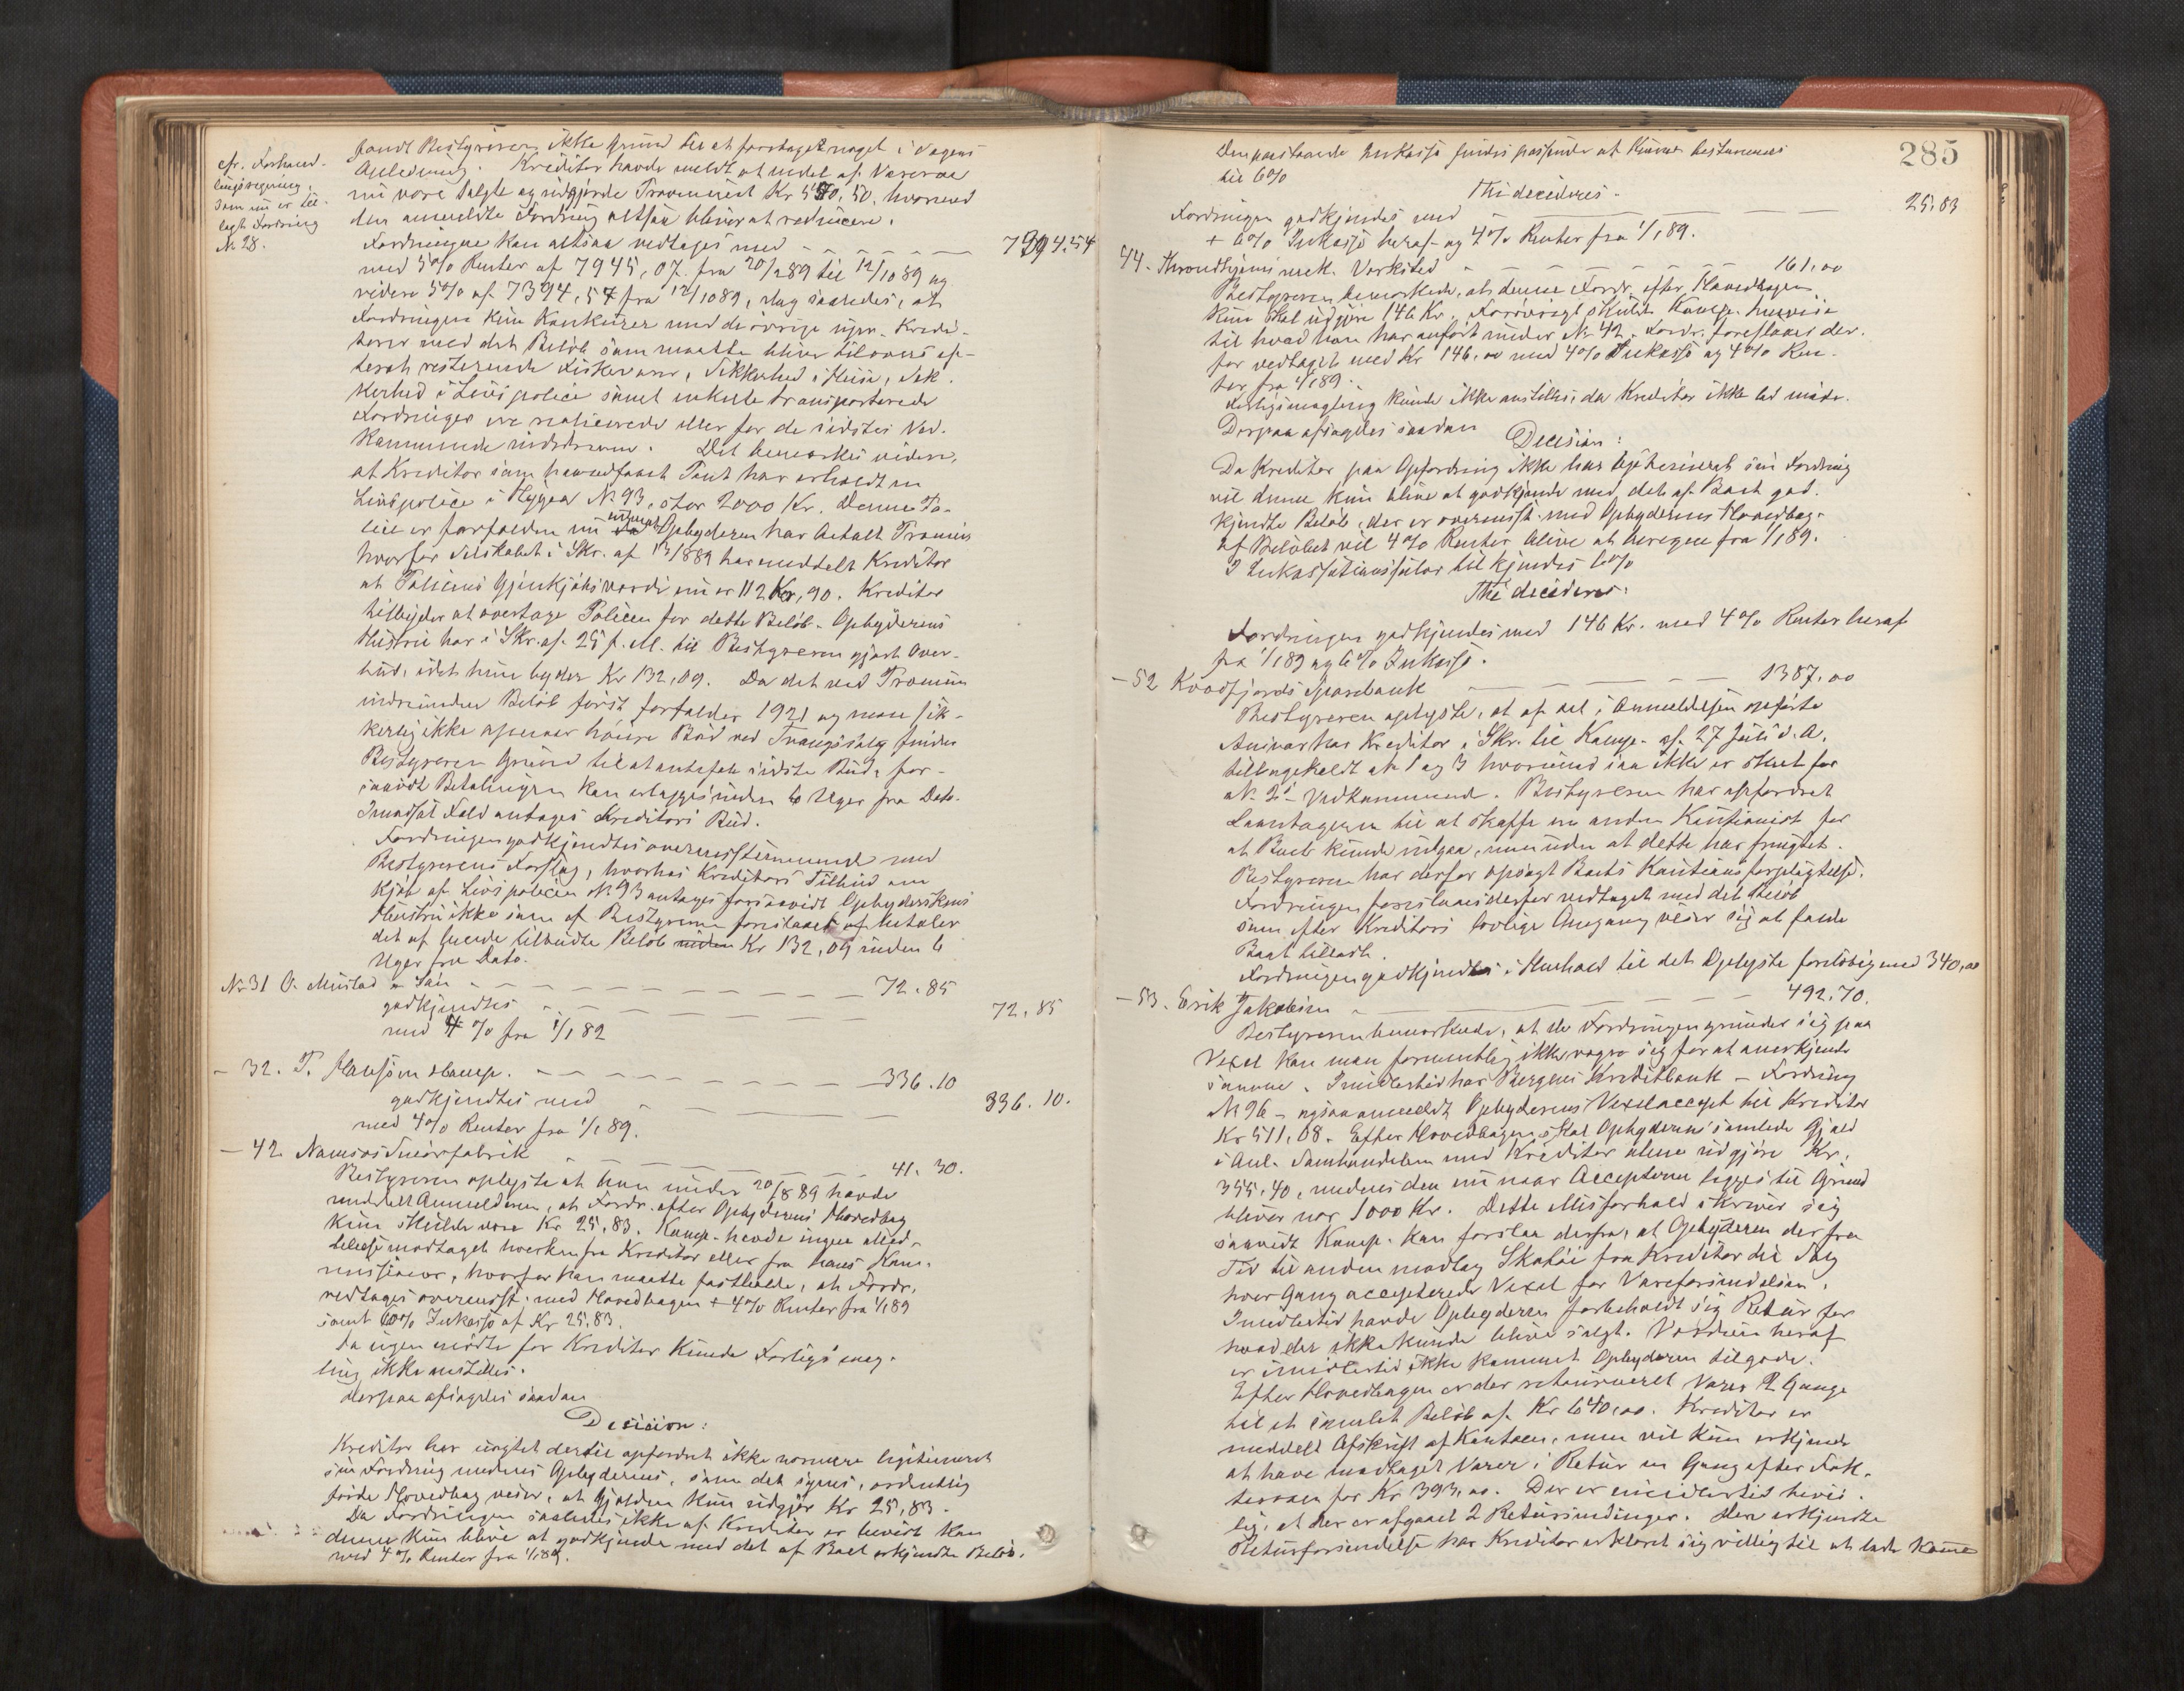 cfr. Forhand-
lingsregning,
som nu er til-
lagt Fordring
No 28.
fandt Bestyreren ikke Grund til at foretages noget i Sagens
Anledning. Kreditor havde meldt at endel af Varerne
nu vare solgte og udgjorde Provenuet Kr 550,50, hvormed
den anmeldte Fordring altsaa bliver at reducere.
Fordringen kan altsaa vedtages med 7394.54
med 5% Renter af 7945,07 fra 20/2 89 til 12/10 89 og
videre 5% af 7394,57 fra 12/10 89, dog saaledes, at
Fordringen kun konkurrer med de øvrige upr. Kredi-
torer med det Beløb som maatte blive tilovers ef-
terat resterende Fiskevarer, Sikkerhed i Huse, Sik-
kerhed i Livspolice samt enkelte transporterede
Fordringer ere realiserede eller for de sidstes Ved-
kommende inddrevne. Det bemærkes videre,
at Kreditor som haandfaaet Pant har erholdt en
Livspolice i Hygea No 93, stor 2000 Kr. Denne Po-
lice er forfalden nu Ophyderen har betalt Præmie
hvorfor Selskabet i Skr. af 13/8 89 har meddelt Kreditor
at Policens Gjenkjøbsværdi nu er 112 Kr, 90. Kreditor
tilbyder at overtage Policen for dette Beløb. Opbyderens
Hustru har i Skr. af 25 f. M. til Bestyreren gjort Over-
bud, idet hun byder Kr 132,09. Da det ved Præmien
indvundne Beløb først forfalder 1921 og man sik-
kerlig ikke opnaar høiere Bud ved Tvangssalg finder
Bestyreren Grund til at anbefale sidste Bud, for-
saavidt Betalingen kan erlægges inden 6 Uger fra Dato.
I modsat Fald antages Kreditors Bud.
Fordringen godkjendtes overensstemmende med
Bestyrerens Forslag, hvorhos Kreditors Tilbud om
Kjøb af Livspolicen No 93 antages forsaavidt Opbyderskens
Hustru ikke som af Bestyreren foreslaaet betaler
det af hende tilbudte Beløb Kr 132,09 inden 6
Uger fra Dato.
No 31 O. Mustad & Søn 72.85
godkjendtes 72,85
med 4% fra 1/1 82
- 32. P. Hansson & Comp. 336.10
godkjendtes med 336.10.
med 4% Renter fra 1/1 89.
- 42 Namsos Smørfabrik 41.30.
Bestyreren oplyste at han under 20/8 89 havde
meddelt Anmelderen, at Fordr. efter Opbyderens Hovedbog
kun skulde være Kr 25,83. Komp. havde ingen Med-
delelse modtaget hverken fra Kreditor eller fra hans Kom-
missionær, hvorfor han maatte fastholde, at Fordr.
vedtages overensst. med Hovedbogen + 4% Renter fra 1/1 89
samt 6% Inkasso af Kr 25,83.
Da ingen mødte for Kreditor kunde Forligsmæg-
ling ikke anstilles.
Derpaa afsagdes saadan
Decision:
Kreditor har uagtet dertil opfordret ikke nærmere legitimeret
sin Fordring medens Opbyderens, som det synes, ordentlig
førte Hovedbog viser, at Gjælden kun udgjør Kr 25,83.
Da Fordringen saaledes ikke af Kreditor er bevist kan
denne kun blive at godkjende med det af Boet erkjendte Beløb.
med 4% Renter fra 1/1 89.
285
Den paastaaede Inkasso findes passende at kunne bestemmes
til 6%
Thi decideres:
Fordringen godkjendes med 25.83
+ 6% Inkasso heraf og 4% Renter fra 1/1 89.
44. Throndhjems mek. Værksted 161.00
Bestyreren bemærkede, at denne Fordr. efter Hovedbogen
kun skal udgjøre 146 Kr. Forøvrigt skulde Komp. henvise
til hvad han har anført under No 42. Fordr. foreslaaes der-
for vedtaget med Kr 146,00 med 4% Inkasso og 4% Ren-
ter fra 1/1 89.
Forligsmægling kunde ikke anstilles, da Kreditor ikke lod møde.
Derpaa afsagdes saadan
Decision:
Da Kreditor paa Opfordring ikke har legitimeret sin Fordring
vil denne kun blive at godkjende med det af Boet god-
kjendte Beløb, der er overensst. med Opbyderens Hovedbog.
Af Beløbet vil 4% Renter blive at beregne fra 1/1 89.
I Inkassationssalær tilkjendes 6%
Thi decideres:
Fordringen godkjendes med 146 Kr. med 4% Renter heraf
fra 1/1 89 og 6% Inkasso.
- 52 Kvædfjords Sparebank 1387.00
Bestyreren oplyste, at af de i Anmeldelsen opførte
Ansvar har Kreditor i Skr. til Komp. af 27 Juli d. A.
tilbagekaldt No 1 og 3 hvorimod saa ikke er skeet for
No 2's Vedkommende. Bestyreren har opfordret
Laantageren til at skaffe en anden Kautionist for
at Boet kunde udgaa, men uden at dette har frugtet.
Bestyreren har derfor opsagt Boets Kautionsforpligtelse.
Fordringen foreslaaes derfor vedtaget med det Beløb
som efter Kreditors lovlige Omgang viser sig at falde
Boet tillast.
Fordringen godkjendtes i Henhold til det Oplyste foreløbig med 340,00
- 53. Erik Jakobsen 492.70.
Bestyreren bemærkede, at da Fordringen grunder sig paa
Vexel kan man formentlig ikke vægre sig for at anerkjende
samme. Imidlertid har Bergens Kreditbank - Fordring
No 96 - ogsaa anmeldt Opbyderens Vexelaccept til Kreditor
Kr 511,08. Efter Hovedbogen skal Opbyderens samlede Gjæld
i Anl. Samhandelen med Kreditor alene udgjøre Kr.
355,40, medens den nu naar Accepterne lægges til Grund
bliver nær 1000 Kr. Dette Misforhold skriver sig
saavidt Komp. kan forstaa derfra, at Opbyderen der fra
Tid til anden modtog Skotøi fra Kreditor til Salg
hver Gang accepterede Vexel for Vareforsendelsen.
Imidlertid havde Opbyderen forbeholdt sig Retur for
hvad der ikke kunde blive solgt. Værdien heraf
er imidlertid ikke kommet Opbyderen tilgode.
Efter Hovedbogen er der returneret Varer 2 Gange
til et samlet Beløb af Kr 640,00. Kreditor er
meddelt Afskrift af Kontoen, men vil kun erkjende
at have modtaget Varer i Retur en Gang efter Fak-
turaen for Kr 393,00. Der er imidlertid bevis-
lig, at der er afgaaet 2 Retursendinger. Den erkjendte
Returforsendelse har Kreditor erklæret sig villig til at lade komme